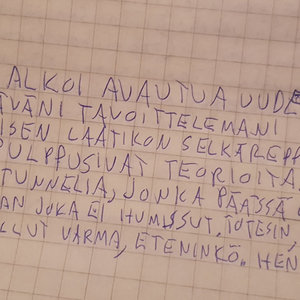 ALKOI AVAUTUA UUDE
TAVOITTELEMANI
LAATIKON SELKÄREPP
PULPPUSIVAT TEORIOITA
TUNNELIA, JONKA PÄÄSSÄ
JOKA EI HUMISSUT. TOTESIN,
VARMA, ETENINKÖ. HEN